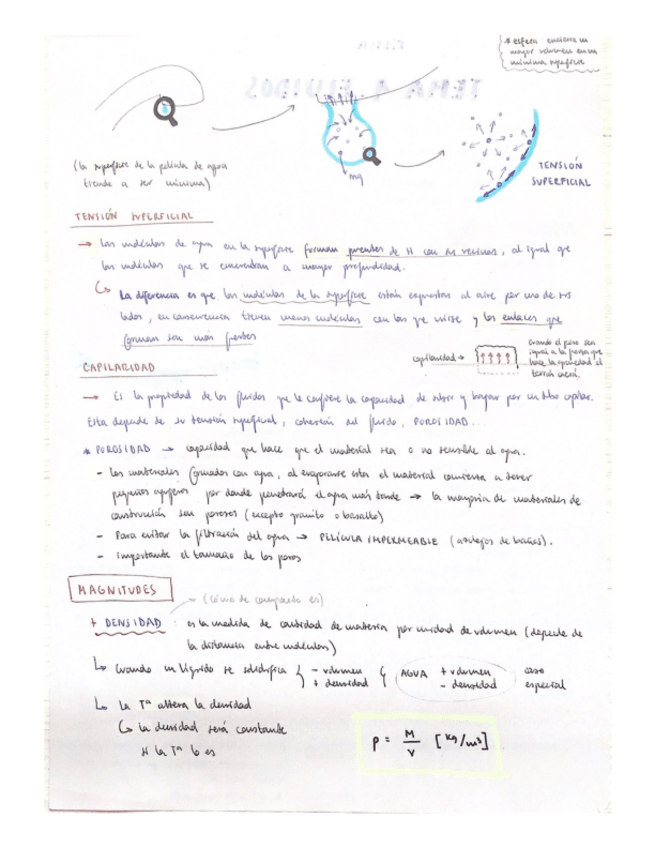 * esfera encierra un
mayor volumen en una
mínima superficie
(la superficie de la película de agua
tiende a ser mínima)
mg
TENSIÓN
SUPERFICIAL
TENSIÓN SUPERFICIAL
→ Las moléculas de agua en la superficie forman puentes de H con M vecinas, al igual que
las moléculas que se encuentran a mayor profundidad.
↳ La diferencia es que las moléculas de la superficie están expuestas al aire por uno de sus
lados, en consecuencia tienen menos moléculas con las que unirse y los enlaces que
forman son más fuertes
capilaridad → ↑↑↑↑
Cuando el peso sea
igual a la fuerza que
hace la gravedad el
CAPILARIDAD
→ Es la propiedad de los fluidos que le confiere la capacidad de subir y bajar por un tubo capilar.
Esta depende de su tensión superficial, cohesión del fluido, POROSIDAD...
* POROSIDAD → capacidad que hace que el material sea o no sensible al agua.
- Los materiales formados con agua, al evaporarse esta el material comienza a tener
pequeños agujeros por donde penetrará el agua más tarde → la mayoría de materiales de
construcción son porosos (excepto granito o basalto)
- Para evitar la filtración del agua → PELÍCULA IMPERMEABLE (azulejos de baños).
- Importante el tamaño de los poros
MAGNITUDES
(cómo de compacto es)
+ DENSIDAD : es la medida de cantidad de materia por unidad de volumen (depende de
la distancia entre moléculas)
↳ Cuando un líquido se solidifica { - volumen + densidad { AGUA + volumen - densidad caso especial
↳ La Tª altera la densidad
↳ la densidad será constante
si la Tª lo es
ρ = M/V [Kg/m³]